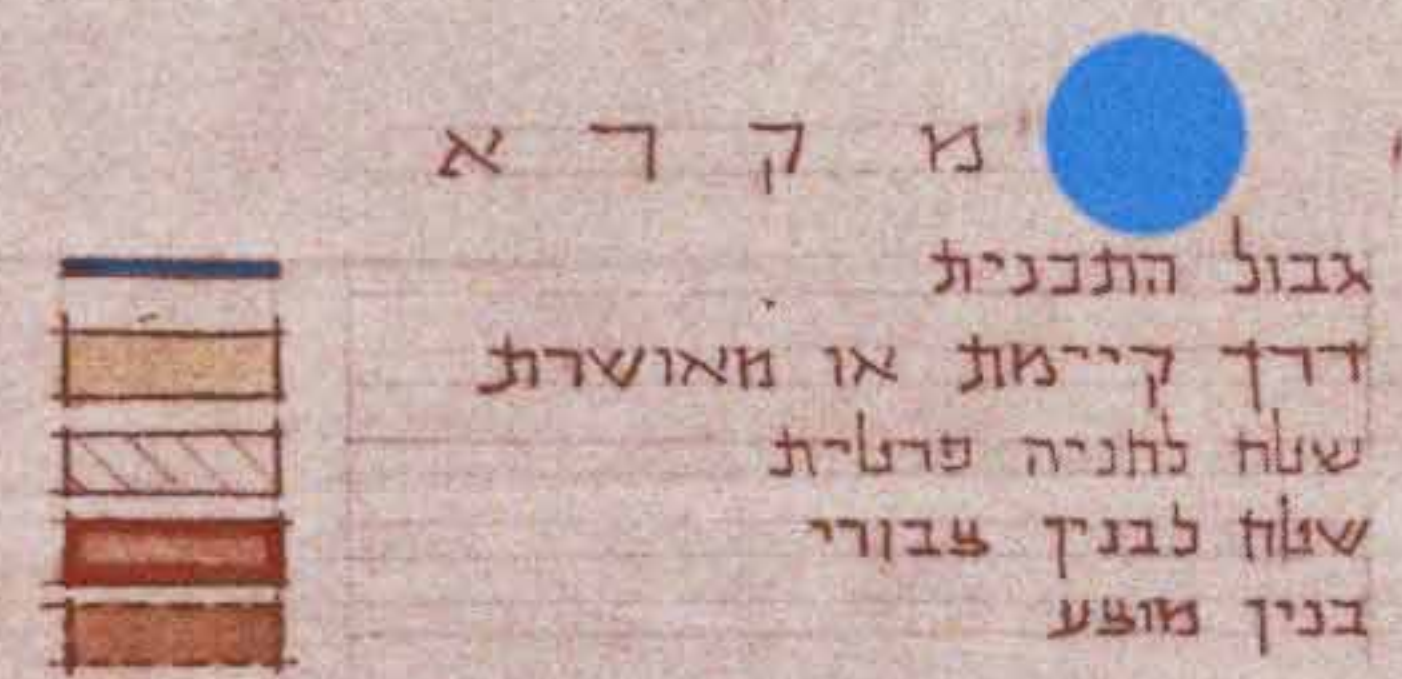 מ ק ר א
גבול התכנית
דרך קיימת או מאושרת
שטח לחניה פרטית
שטח לבנין צבורי
בנין מוצע